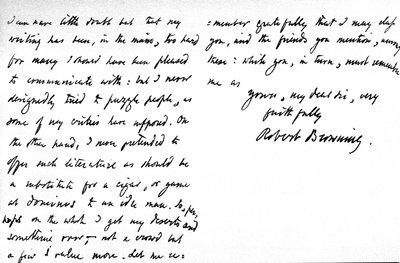 I can have little doubt but that my
writing has been, in the main, too hard
for many I should have been pleased
to communicate with: but I never
designedly tried to puzzle people, as
some of my critics have supposed. On
the other hand, I never pretended to
offer such literature as should be
a substitute for a cigar, or game
at dominos to an idle man. So, per-
haps on the whole I get my deserts and
something over,— not a crowd but
a few I value more. Let me re-
=member gratefully that I may class
you, and the friends you mention, among
these: while you, in turn, must remember
me as
yours, my dear sir, very
faithfully
Robert Browning.